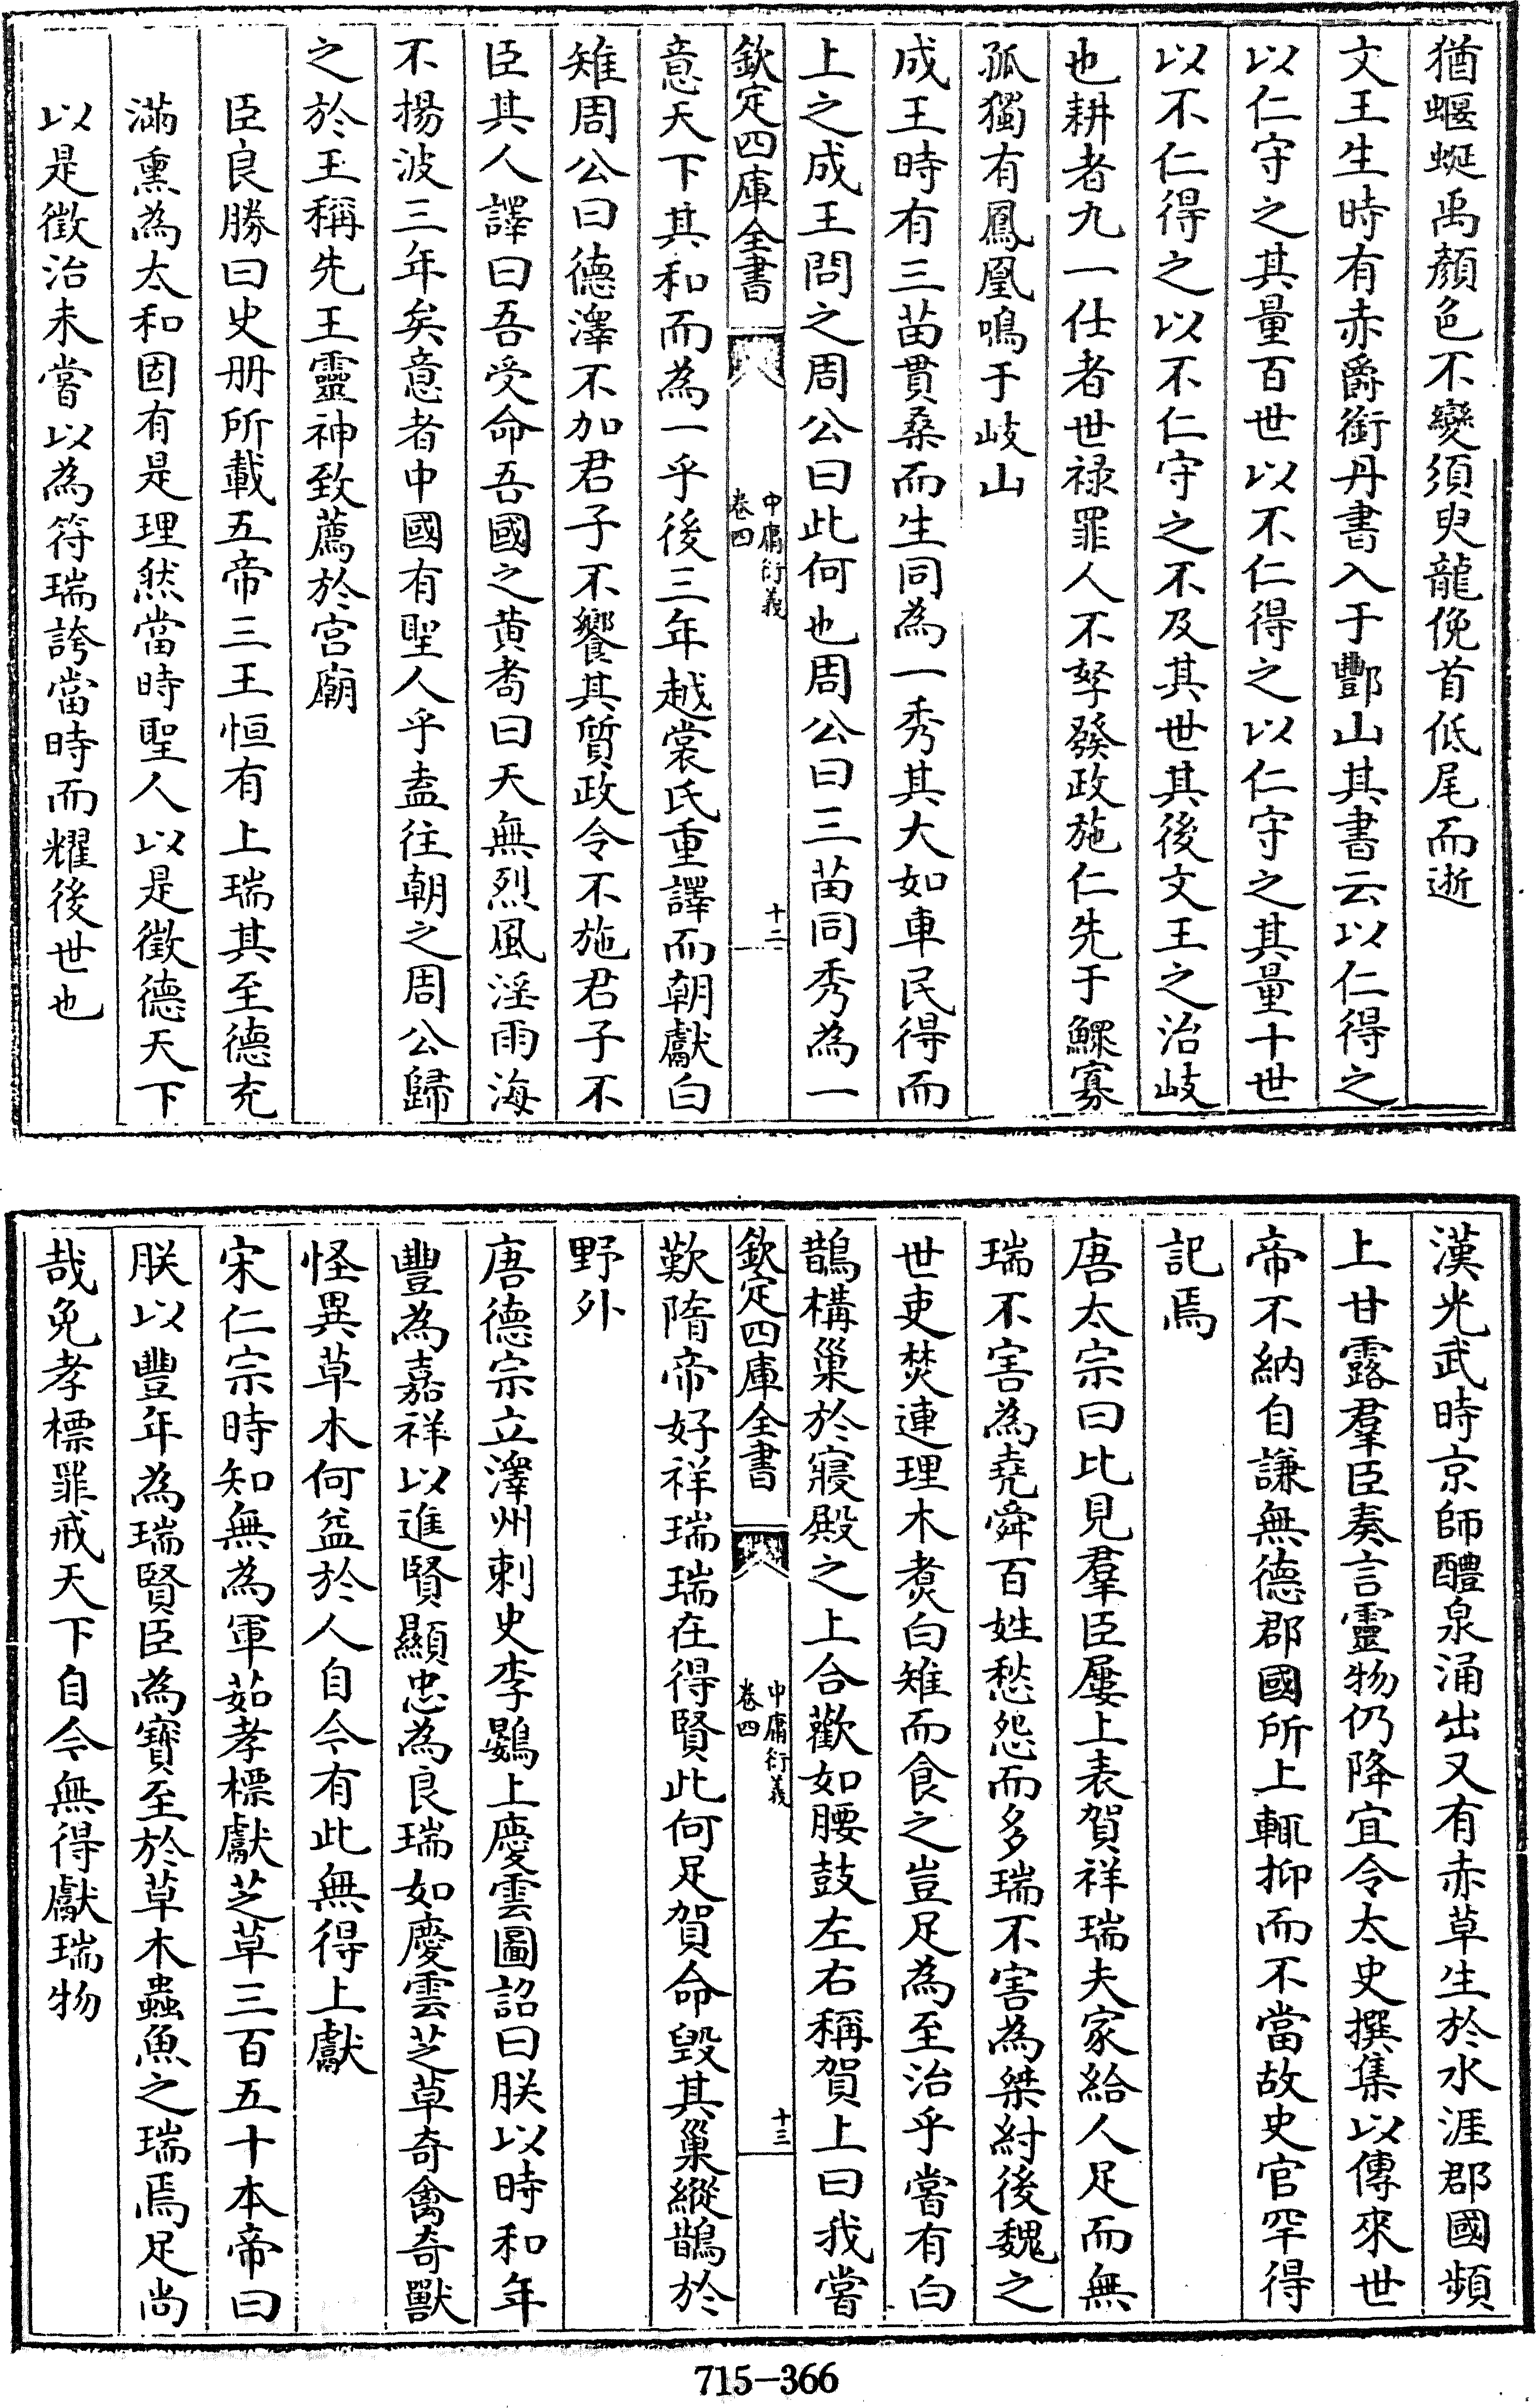 猶蝘蜓禹顏色不變須臾龍俛首低尾而逝
文王生時有赤爵銜丹書入于酆山其書云以仁得之
以仁守之其量百世以不仁得之以仁守之其量十世
以不仁得之以不仁守之不及其世其後文王之治岐
也耕者九一仕者世祿罪人不孥發政施仁先于鰥寡
孤獨有鳳凰鳴于岐山
成王時有三苗貫桑而生同為一秀其大如車民得而
上之成王問之周公曰此何也周公曰三苗同秀為一
欽定四庫全書
中庸衍義
卷四
十二
意天下其和而為一乎後三年越裳氏重譯而朝獻白
雉周公曰德澤不加君子不饗其質政令不施君子不
臣其人譯曰吾受命吾國之黃耇曰天無烈風淫雨海
不揚波三年矣意者中國有聖人乎盍往朝之周公歸
之於王稱先王靈神致薦於宫廟
臣良勝曰史册所載五帝三王恒有上瑞其至德充
滿熏為太和固有是理然當時聖人以是徵德天下
以是徵治未嘗以為符瑞誇當時而耀後世也
漢光武時京師醴泉涌出又有赤草生於水涯郡國頻
上甘露羣臣奏言靈物仍降宜令太史撰集以傳來世
帝不納自謙無德郡國所上輒抑而不當故史官罕得
記焉
唐太宗曰比見羣臣屢上表賀祥瑞夫家給人足而無
瑞不害為堯舜百姓愁怨而多瑞不害為桀紂後魏之
世吏焚連理木煑白雉而食之豈足為至治乎嘗有白
鵲構巢於寢殿之上合歡如腰鼓左右稱賀上曰我嘗
欽定四庫全書
中庸衍義
卷四
十三
歎隋帝好祥瑞瑞在得賢此何足賀命毀其巢縱鵲於
野外
唐德宗立澤州刺史李鷃上慶雲圖詔曰朕以時和年
豐為嘉祥以進賢顯忠為良瑞如慶雲芝草奇禽奇獸
怪異草木何益於人自今有此無得上獻
宋仁宗時知無為軍茹孝標獻芝草三百五十本帝曰
朕以豐年為瑞賢臣為寳至於草木蟲魚之瑞焉足尚
哉免孝標罪戒天下自今無得獻瑞物
715-366